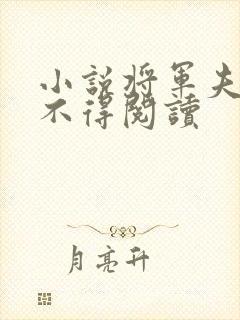 小說將軍夫
不得閱讀
月亮升